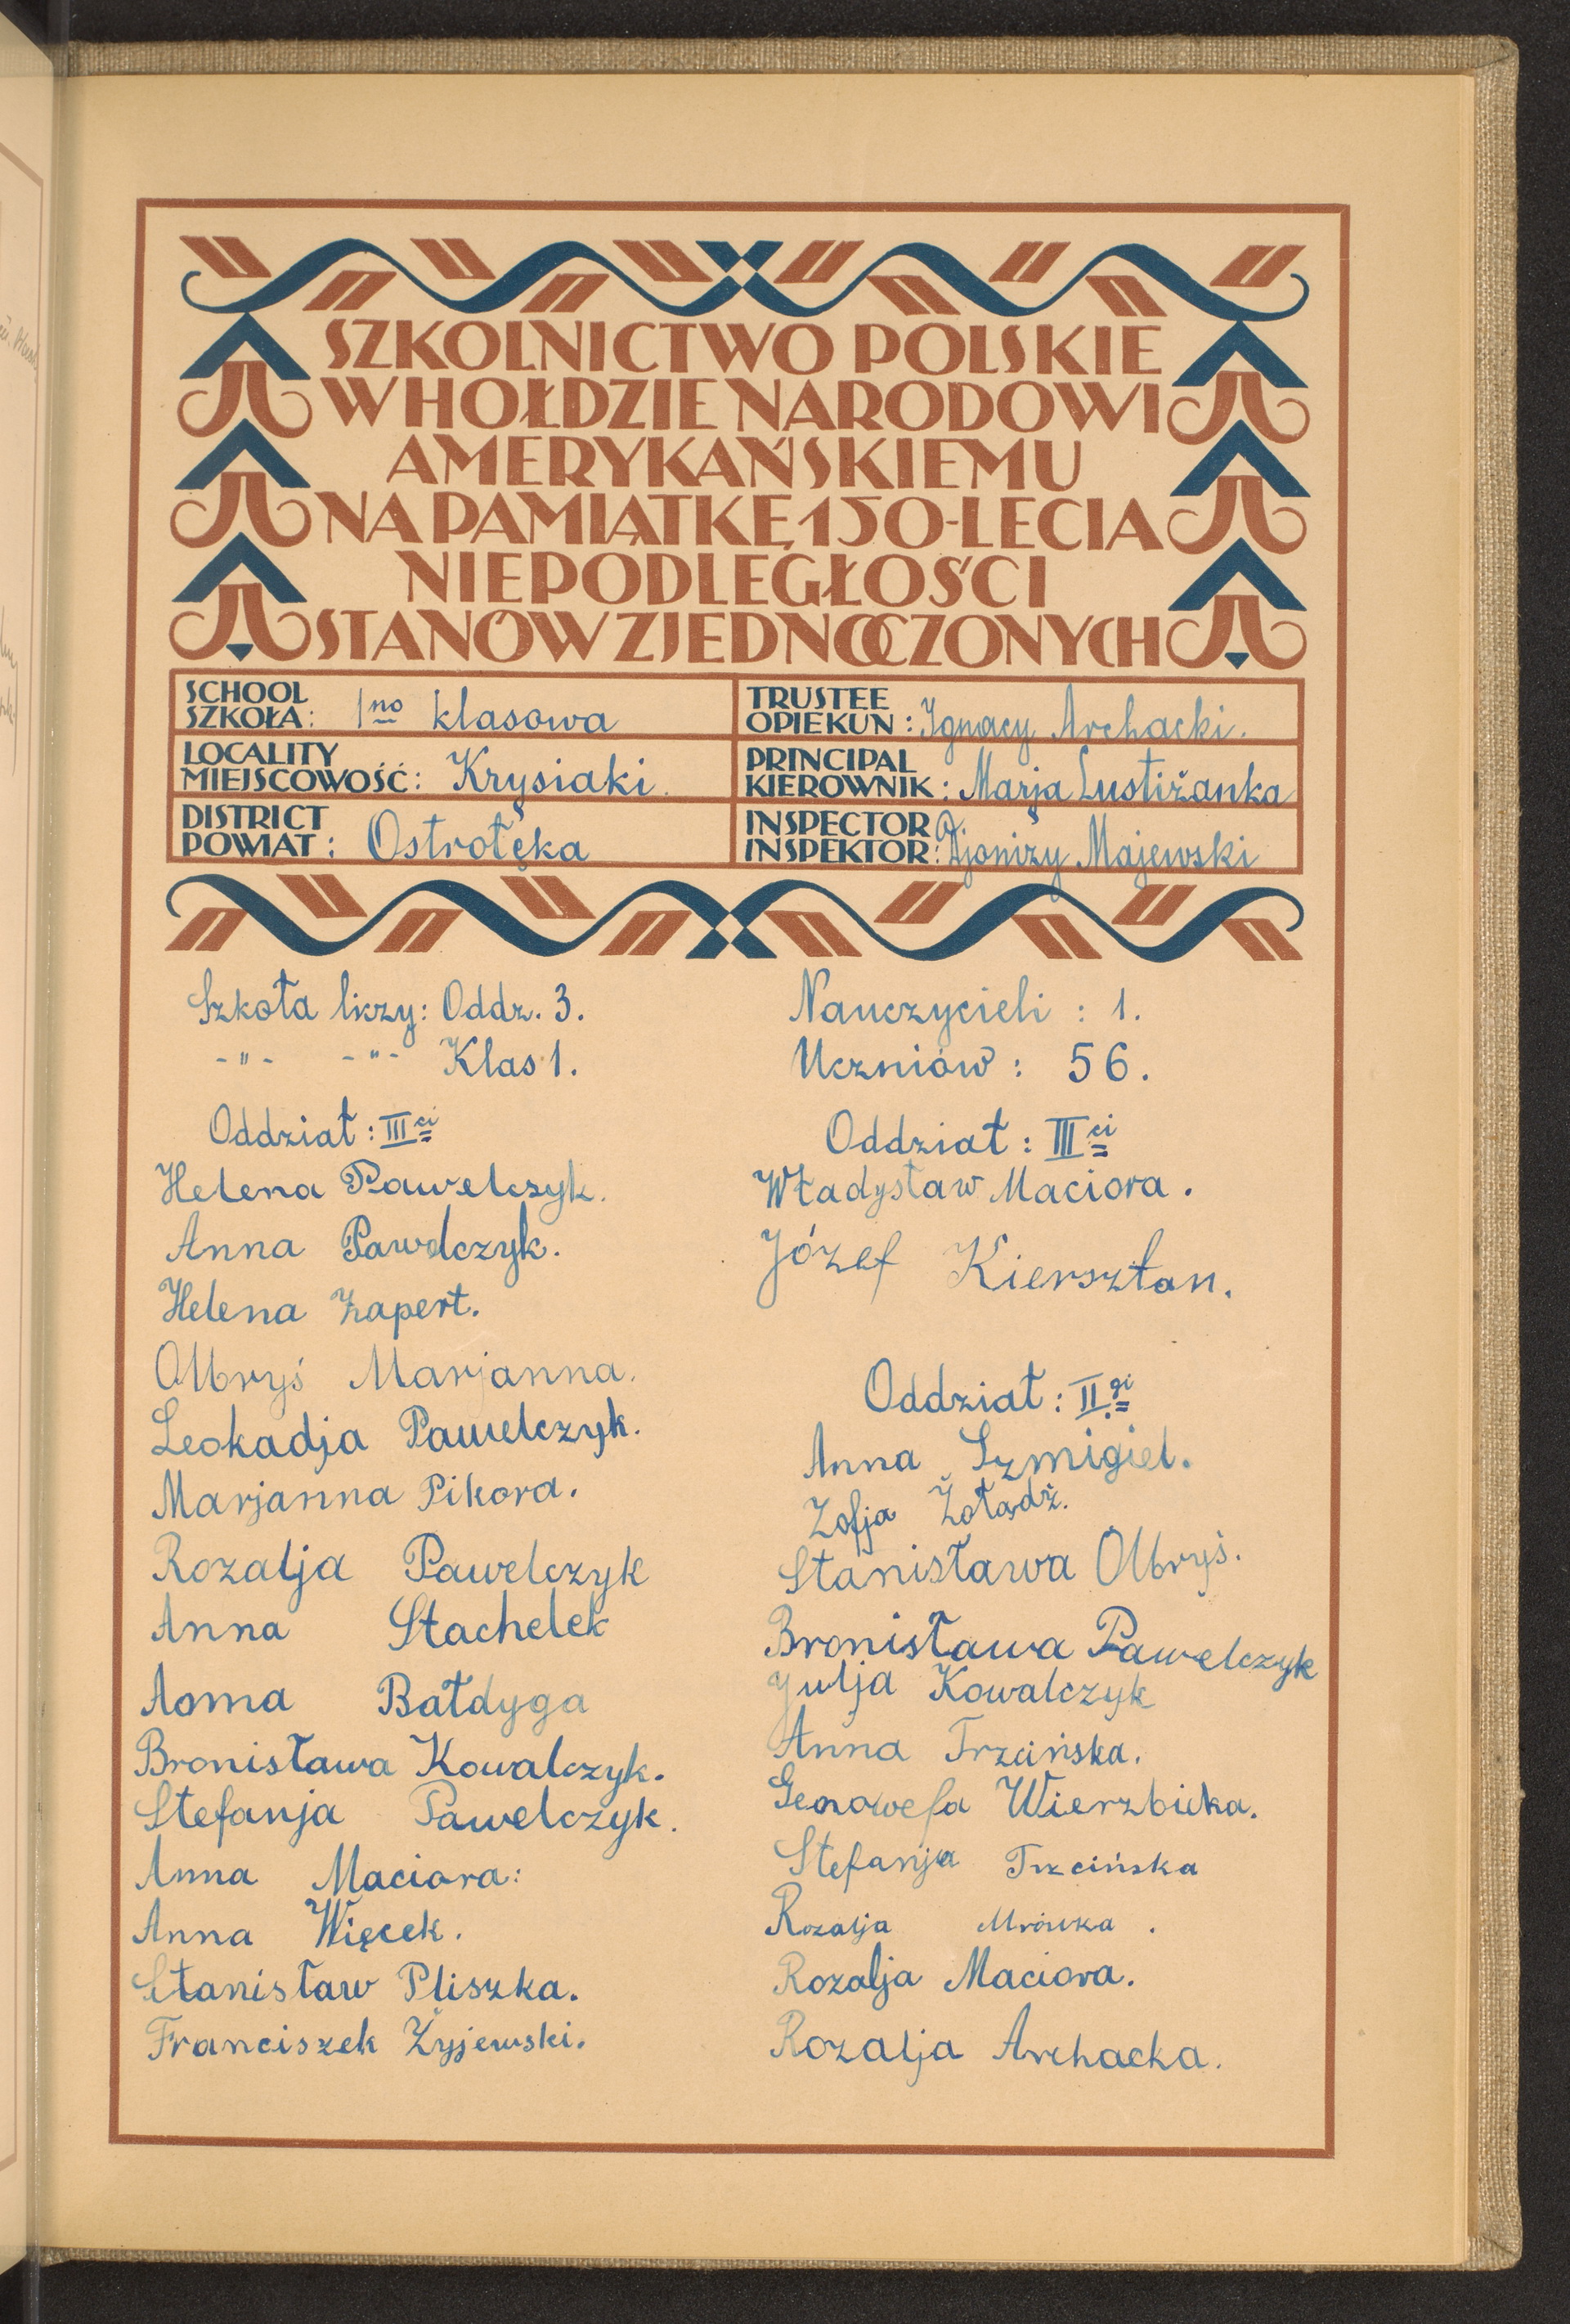 SZKOLNICTWO POLSKIE
W HOŁDZIE NARODOWI
AMERYKAŃSKIEMU
NA PAMIĄTKĘ 150-LECIA
NIEPODLEGŁOŚCI
STANÓW ZJEDNOCZONYCH
SCHOOL
SZKOŁA: 1no klasowa
LOCALITY
MIEJSCOWOŚĆ: Krysiaki.
DISTRICT
POWIAT: Ostrołęka
TRUSTEE
OPIEKUN: Ignacy Archacki.
PRINCIPAL
KIEROWNIK: Marja Lustiżanka
INSPECTOR
INSPEKTOR: Djonizy Majewski
Szkoła liczy: Oddz. 3.
-"- -"- Klas 1.
Oddział: IIIci
Helena Pawelczyk.
Anna Pawelczyk.
Helena Zapert.
Olbryś Marjanna.
Leokadja Pawelczyk.
Marjanna Pikora.
Rozalja Pawelczyk
Anna Stachelek
Anna Bałdyga
Bronisława Kowalczyk.
Stefanja Pawelczyk.
Anna Maciora:
Anna Więcek.
Stanisław Pliszka.
Franciszek Żyjewski.
Nauczycieli: 1.
Uczniów: 56.
Oddział: IIIci
Władysław Maciora.
Józef Kiersztan.
Oddział: II.gi
Anna Szmigiel.
Zofja Żołądź.
Stanisława Olbryś.
Bronisława Pawelczyk
Julja Kowalczyk
Anna Trzcińska.
Genowefa Wierzbicka.
Stefanja Trzcińska
Rozalja Mrówka.
Rozalja Maciora.
Rozalja Archacka.